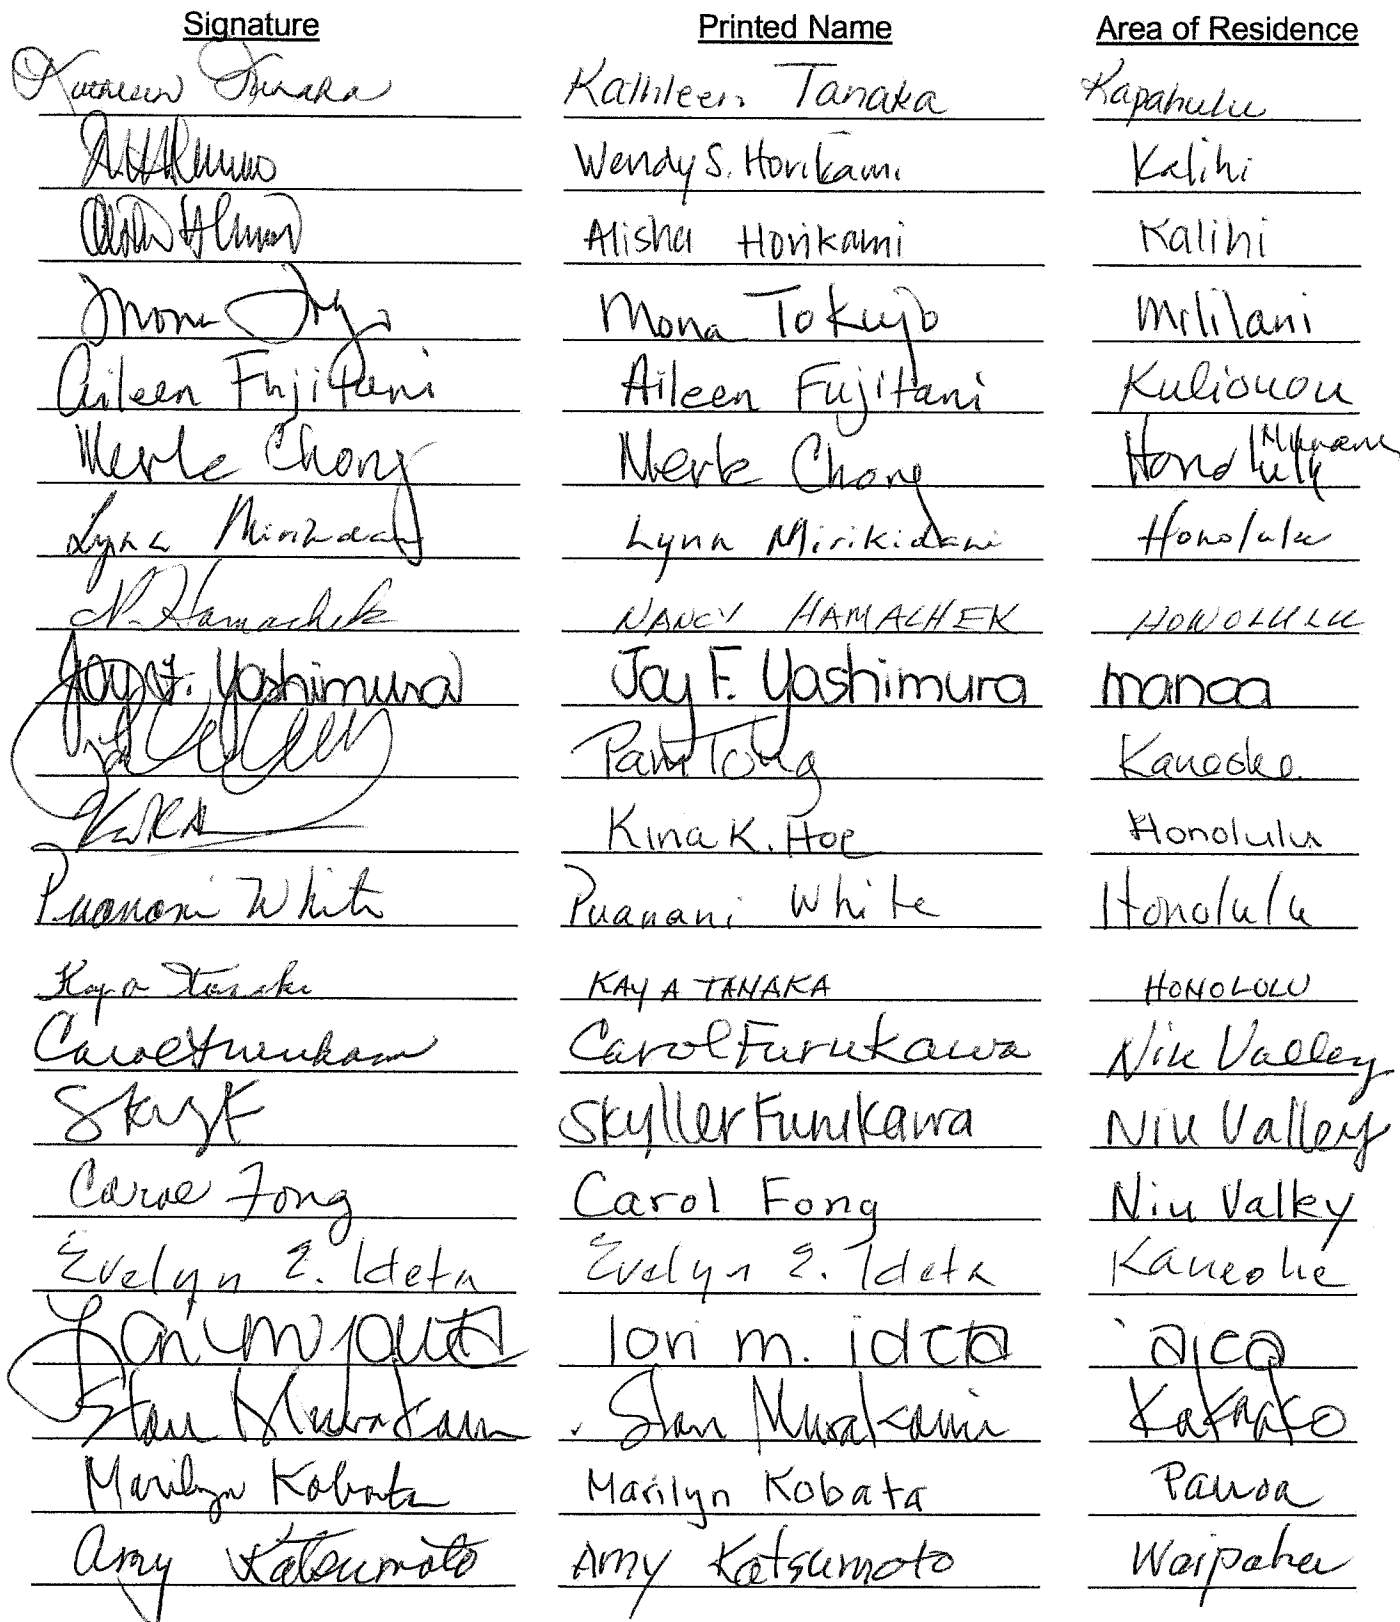 Signature Printed Name Area of Residence
Kathleen Tanaka Kathleen Tanaka Kapahulu
Wendy S. Horikami Kalihi
Alisha Horikami Kalihi
Mona Mona Tokujo Mililani
Aileen Fujitani Aileen Fujitani Kuliouou
Merle Chong Merle Chong Honolulu
Lynn Mirikidani Lynn Mirikidani Honolulu
N. Hamachek NANCY HAMACHEK HONOLULU
Joy F. Yoshimura Joy F. Yoshimura manoa
Pam Tong Kaneohe
Kina K. Hoe Honolulu
Puanani White Puanani White Honolulu
Kay A Tanaka KAY A TANAKA HONOLULU
Carol Furukawa Carol Furukawa Niu Valley
Skyller Furukawa Niu Valley
Carol Fong Carol Fong Niu Valley
Evelyn E. Ideta Evelyn E. Ideta Kaneohe
Lori M Ideta lori m. ideta aiea
Stan Murakami Stan Murakami Kakaako
Marilyn Kobata Marilyn Kobata Pauoa
Amy Katsumoto Amy Katsumoto Waipahu